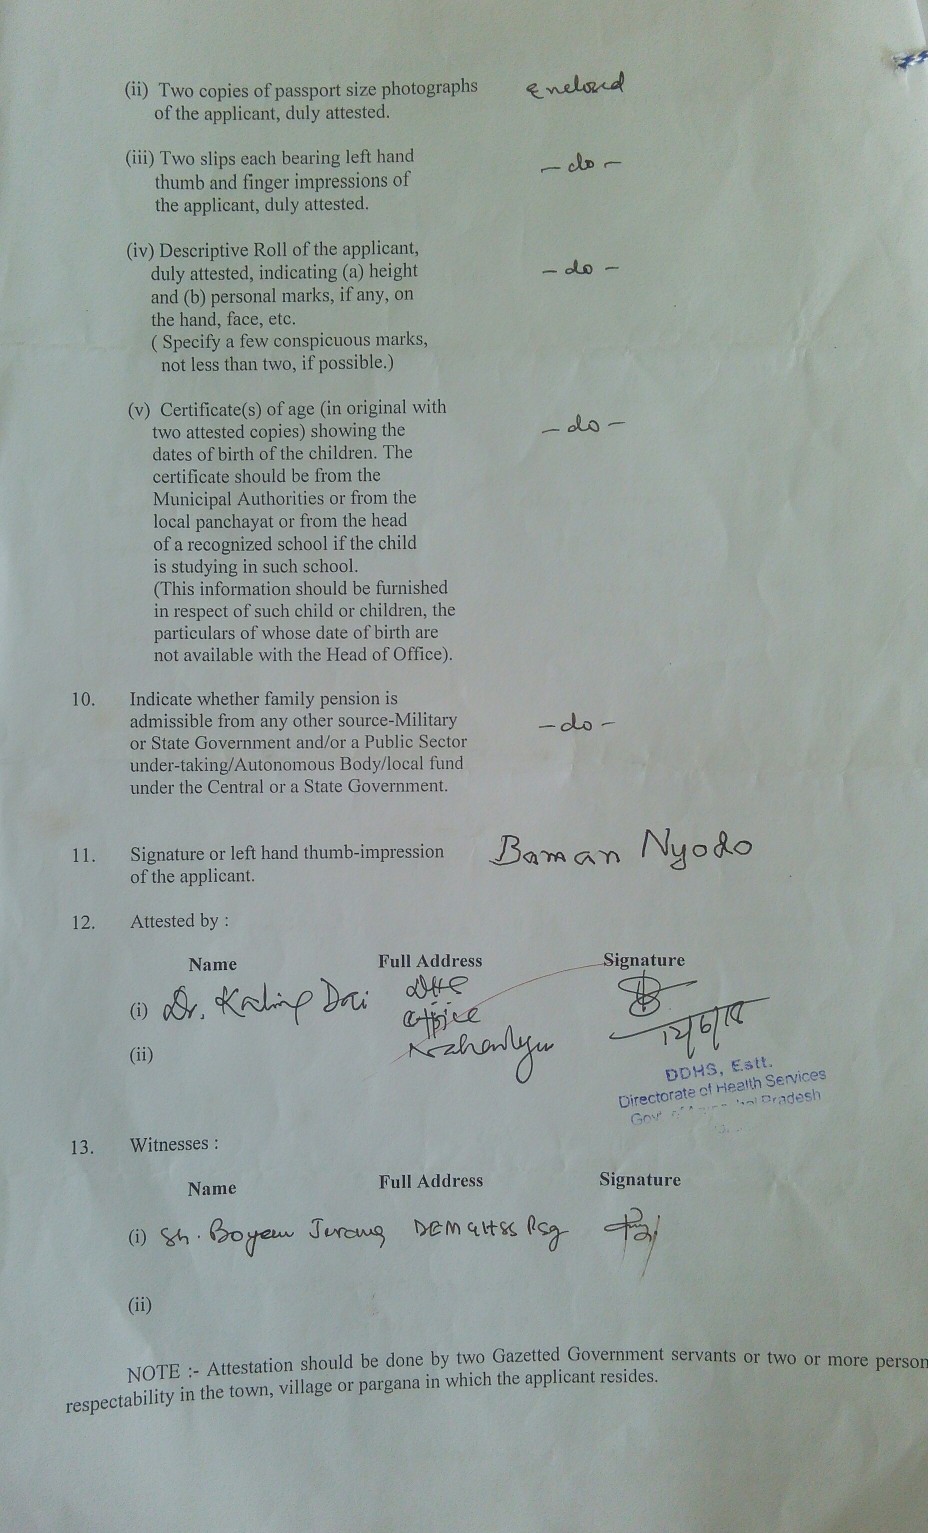 (ii) Two copies of passport size photographs
of the applicant, duly attested.
Enclosed
(iii) Two slips each bearing left hand
thumb and finger impressions of
the applicant, duly attested.
- do -
(iv) Descriptive Roll of the applicant,
duly attested, indicating (a) height
and (b) personal marks, if any, on
the hand, face, etc.
( Specify a few conspicuous marks,
not less than two, if possible.)
- do -
(v) Certificate(s) of age (in original with
two attested copies) showing the
dates of birth of the children. The
certificate should be from the
Municipal Authorities or from the
local panchayat or from the head
of a recognized school if the child
is studying in such school.
(This information should be furnished
in respect of such child or children, the
particulars of whose date of birth are
not available with the Head of Office).
- do -
10. Indicate whether family pension is
admissible from any other source-Military
or State Government and/or a Public Sector
under-taking/Autonomous Body/local fund
under the Central or a State Government.
- do -
11. Signature or left hand thumb-impression
of the applicant.
Baman Nyodo
12. Attested by :
Name Full Address Signature
(i) Dr. Dai
DHS
office
12/6/18
(ii)
DDHS, Estt.
Directorate of Health Services
Pradesh
13. Witnesses :
Name Full Address Signature
(i) Sh.
(ii)
NOTE :- Attestation should be done by two Gazetted Government servants or two or more person
respectability in the town, village or pargana in which the applicant resides.